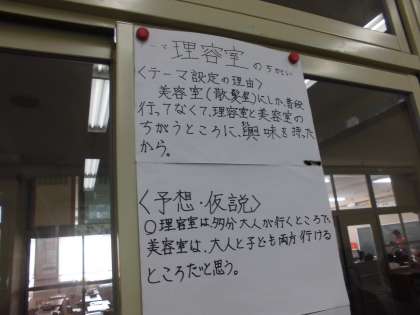 と理容室のちがい
〈テーマ設定の理由〉
美容室(散髪屋)にしか普段
行ってなくて、理容室と美容室の
ちがうところに、興味を持った
から。
〈予想・仮説〉
〇理容室は、多分大人が行くところで、
美容室は、大人と子ども両方行ける
ところだと思う。